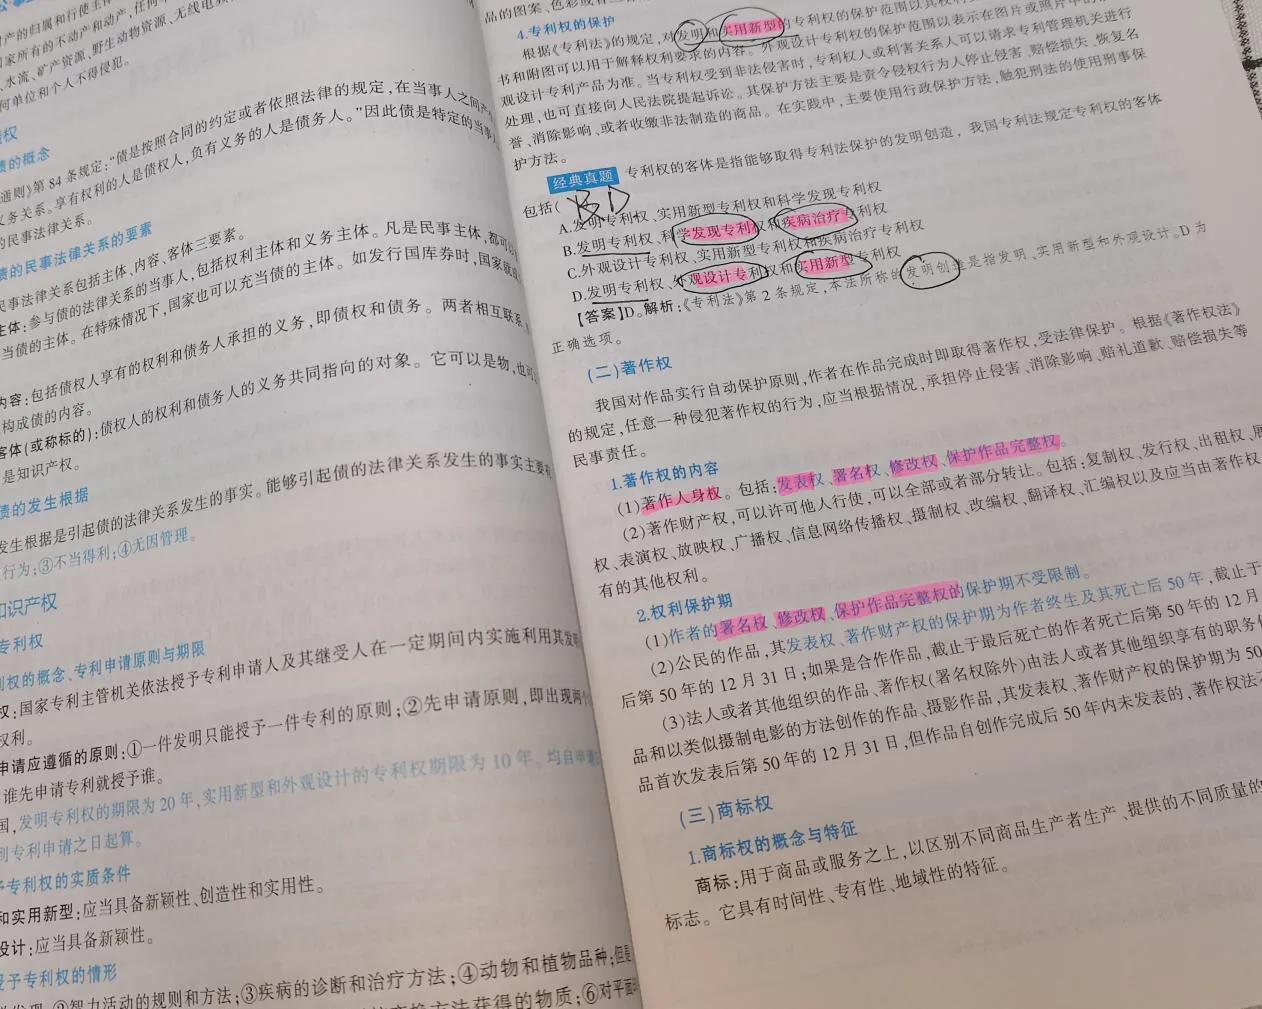 产的归属和行使主
家所有的不动产和动产,任何
、水流、矿产资源、野生动物资源、无线电
何单位和个人不得侵犯。
债的概念
通则》第 84 条规定:“债是按照合同的约定或者依照法律的规定,在当事人之间产
义务关系。享有权利的人是债权人,负有义务的人是债务人。”因此债是特定的当事
的民事法律关系。
债的民事法律关系的要素
民事法律关系包括主体、内容、客体三要素。
主体:参与债的法律关系的当事人,包括权利主体和义务主体。凡是民事主体,都可
当债的主体。在特殊情况下,国家也可以充当债的主体。如发行国库券时,国家就
内容:包括债权人享有的权利和债务人承担的义务,即债权和债务。两者相互联系
构成债的内容。
客体(或称标的):债权人的权利和债务人的义务共同指向的对象。它可以是物,也可
是知识产权。
债的发生根据
发生根据是引起债的法律关系发生的事实。能够引起债的法律关系发生的事实主要有
行为;③不当得利;④无因管理。
知识产权
专利权
利权的概念、专利申请原则与期限
权:国家专利主管机关依法授予专利申请人及其继受人在一定期间内实施利用其发明
权利。
申请应遵循的原则:①一件发明只能授予一件专利的原则;②先申请原则,即出现两个
谁先申请专利就授予谁。
国,发明专利权的期限为 20 年,实用新型和外观设计的专利权期限为 10 年。均自申请
到专利申请之日起算。
予专利权的实质条件
和实用新型:应当具备新颖性、创造性和实用性。
设计:应当具备新颖性。
授予专利权的情形
②智力活动的规则和方法;③疾病的诊断和治疗方法;④动物和植物品种;但是
变换方法获得的物质;⑥对平面
品的图案、色彩或者
4.专利权的保护
根据《专利法》的规定,对发明和实用新型的专利权的保护范围以其权利
书和附图可以用于解释权利要求的内容。外观设计专利权的保护范围以表示在图片或照片中的
观设计专利产品为准。当专利权受到非法侵害时,专利权人或利害关系人可以请求专利管理机关进行
处理,也可直接向人民法院提起诉讼。其保护方法主要是责令侵权行为人停止侵害、赔偿损失、恢复名
誉、消除影响、或者收缴非法制造的商品。在实践中,主要使用行政保护方法,触犯刑法的使用刑事保
护方法。
经典真题 专利权的客体是指能够取得专利法保护的发明创造,我国专利法规定专利权的客体
包括( BD
A.发明专利权、实用新型专利权和科学发现专利权
B.发明专利权、科学发现专利权和疾病治疗专利权
C.外观设计专利权、实用新型专利权和疾病治疗专利权
D.发明专利权、外观设计专利权和实用新型专利权
【答案】D。解析:《专利法》第 2 条规定,本法所称的发明创造是指发明、实用新型和外观设计。D 为
正确选项。
(二)著作权
我国对作品实行自动保护原则,作者在作品完成时即取得著作权,受法律保护。根据《著作权法》
的规定,任意一种侵犯著作权的行为,应当根据情况,承担停止侵害、消除影响、赔礼道歉、赔偿损失等
民事责任。
1.著作权的内容
(1)著作人身权。包括:发表权、署名权、修改权、保护作品完整权。
(2)著作财产权,可以许可他人行使,可以全部或者部分转让。包括:复制权、发行权、出租权、展
权、表演权、放映权、广播权、信息网络传播权、摄制权、改编权、翻译权、汇编权以及应当由著作权
有的其他权利。
2.权利保护期
(1)作者的署名权、修改权、保护作品完整权的保护期不受限制。
(2)公民的作品,其发表权、著作财产权的保护期为作者终生及其死亡后 50 年,截止于
后第 50 年的 12 月 31 日;如果是合作作品,截止于最后死亡的作者死亡后第 50 年的 12 月
(3)法人或者其他组织的作品、著作权(署名权除外)由法人或者其他组织享有的职务
品和以类似摄制电影的方法创作的作品、摄影作品,其发表权、著作财产权的保护期为 50
品首次发表后第 50 年的 12 月 31 日,但作品自创作完成后 50 年内未发表的,著作权法
(三)商标权
1.商标权的概念与特征
商标:用于商品或服务之上,以区别不同商品生产者生产、提供的不同质量的
标志。它具有时间性、专有性、地域性的特征。